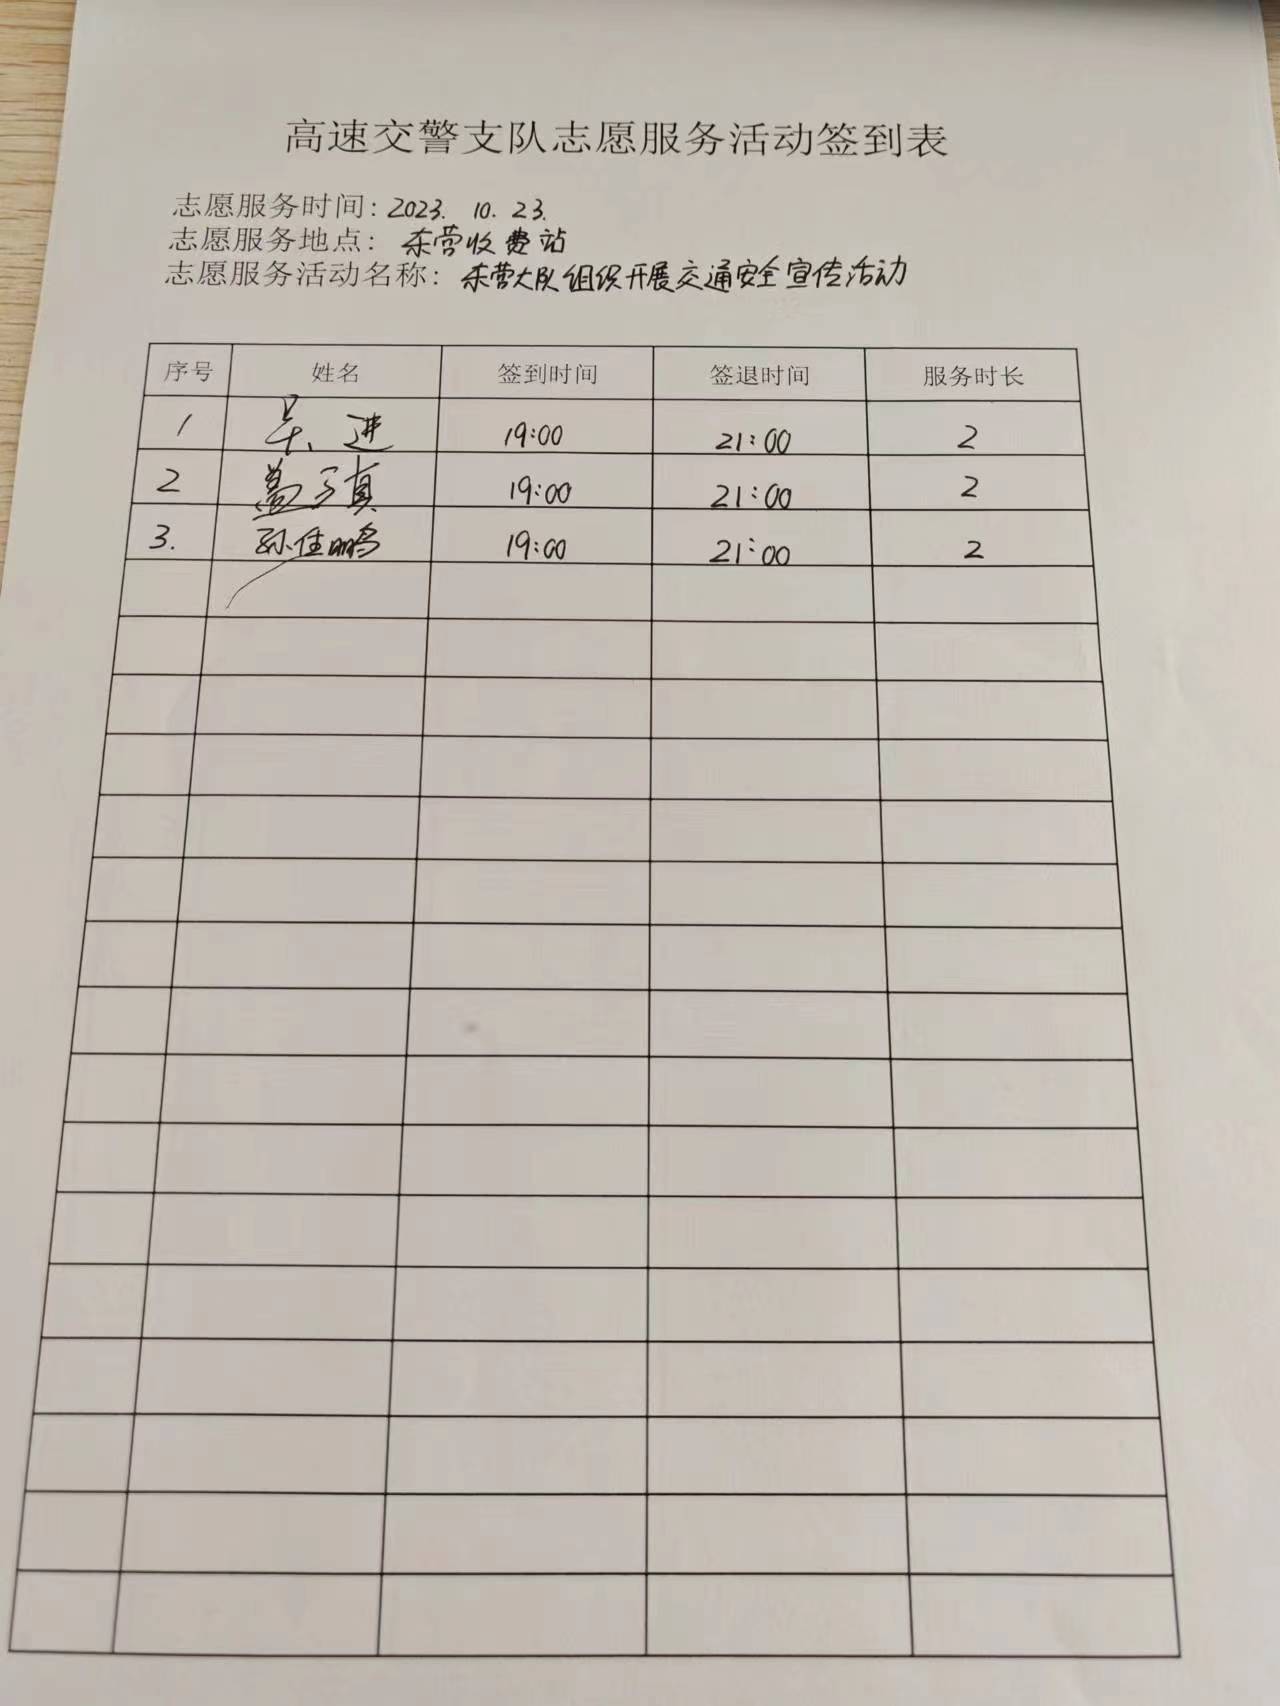 高速交警支队志愿服务活动签到表
志愿服务时间：2023. 10. 23.
志愿服务地点：东营收费站
志愿服务活动名称：东营大队组织开展交通安全宣传活动
序号 姓名 签到时间 签退时间 服务时长
1 吴进 19:00 21:00 2
2 盖子真 19:00 21:00 2
3. 孙佳鹏 19:00 21:00 2